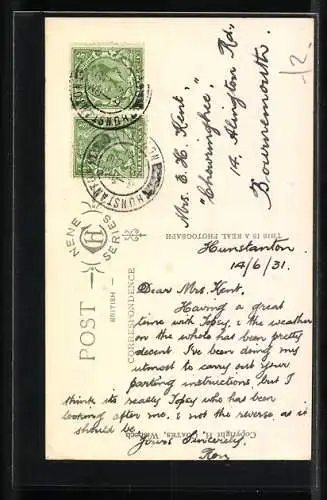 Hunstanton
14/6/31.
Dear Mrs. Kent,
Having a great
time with Topsy, & the weather
on the whole has been pretty
decent. I've been doing my
utmost to carry out your
parting instructions, but I
think its really Topsy who has been
looking after me, & not the reverse, as it
should be.
Yours Sincerely,
Mrs. E. H. Kent,
14, Alington Rd,
Bournemouth.
12
POST
BRITISH
CORRESPONDENCE
THIS IS A REAL PHOTOGRAPH
NENE
SERIES
HUNSTANTON
HUNSTANTON
Copyright H. COATES,